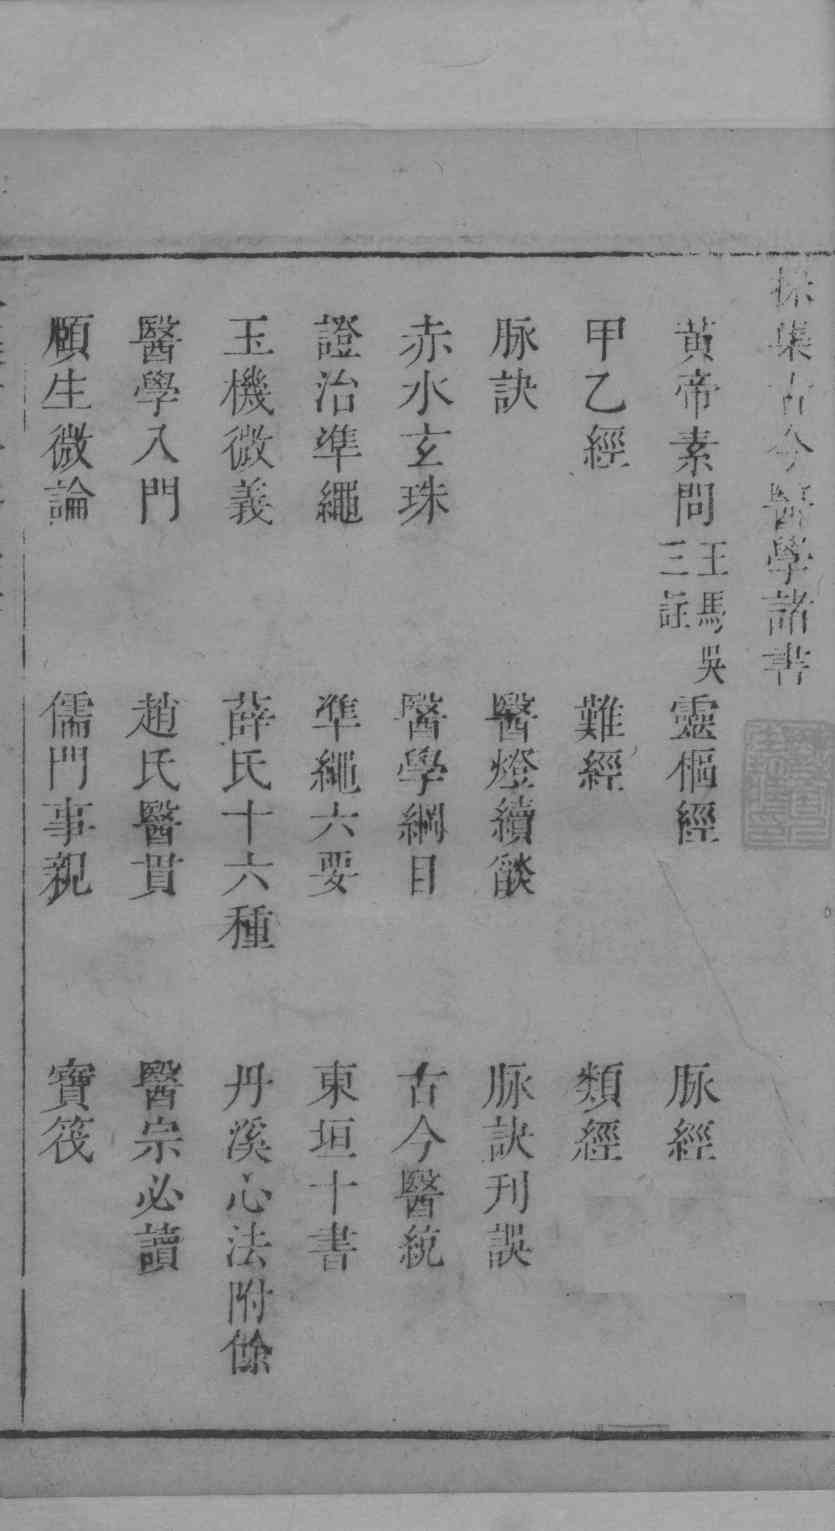 採集古今醫學諸書
黃帝素問王馬吳三註 靈樞經 脉經
甲乙經 難經 類經
脉訣 醫燈續燄 脉訣刊誤
赤水玄珠 醫學綱目 古今醫統
證治準繩 準繩六要 東垣十書
玉機微義 薛氏十六種 丹溪心法附餘
醫學入門 趙氏醫貫 醫宗必讀
頤生微論 儒門事親 寶筏